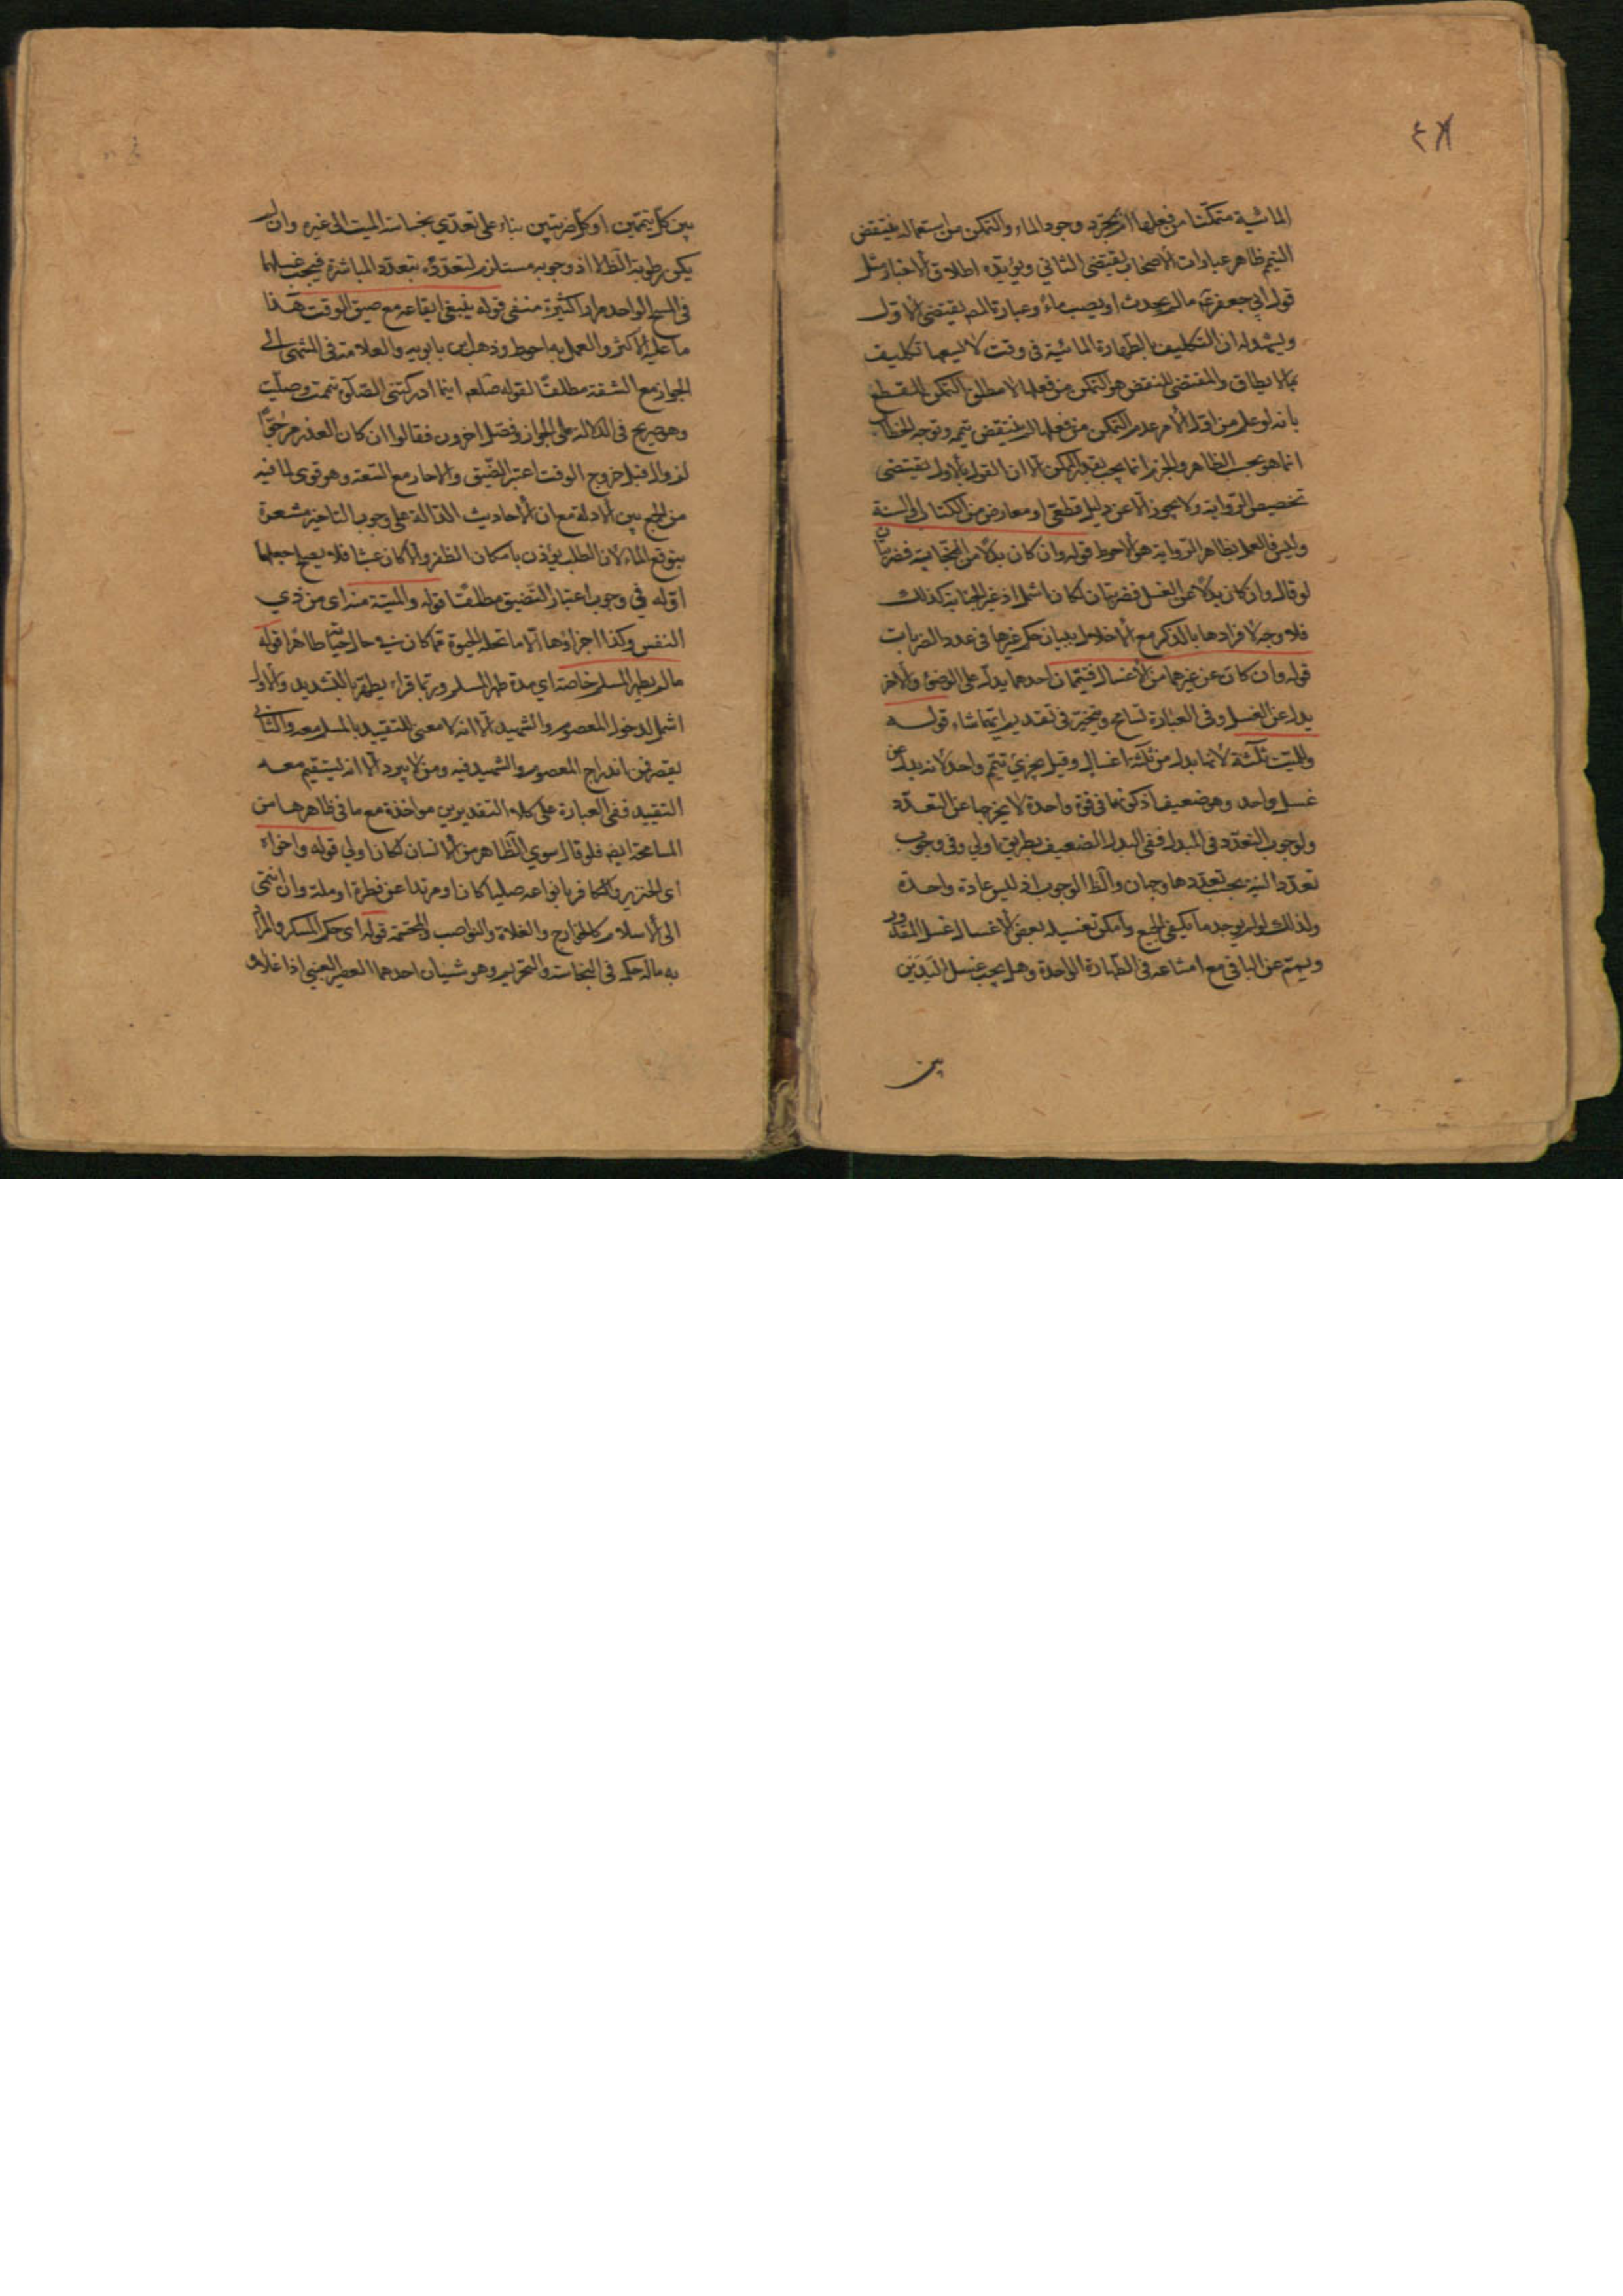 ٤٨
المائية متمكنا من فعلها أو بمجرد وجود الماء والتمكن من استعماله فينتقض
التيمم ظاهر عبارات الأصحاب يقتضي الثاني ويؤيده اطلاق الاخبار مثل
قول ابي جعفر ع مالم يحدث او يصب ماء وعبارة المص يقتضى الاول
ويشهد له ان التكليف بالطهارة المائية فى وقت لا يسعها تكليف
بما لا يطاق والمقتضى للنقض هو التمكن من فعلها لا مطلق التمكن للقطع
بانه لو علم من اول الأمر عدم التمكن من فعلها لم ينتقض تيممه وتوجه الخطاب
انما هو بحسب الظاهر والجزم انما يجب بقدر الممكن الا ان القول بالاول يقتضى
تخصيص الرواية ولا يجوز الا عن دليل قطعي او معارض من الكتاب والسنة
وليس فالعمل بظاهر الرواية هو الاحوط قوله وان كان بدلا من الجنابة فضربتان
لو قال وان كان بدلا عن الغسل فضربتان لكان اشمل اذ غير الجنابة كذلك
فلا وجه لافرادها بالذكر مع الاخلال ببيان حكم غيرها فى عدد الضربات
قوله وان كان عن غيرهما من الأغسال فتيممان احدهما بدل عن الوضوء والاخر
بدل عن الغسل وفى العبارة تسامح ويتخير فى تقديم ايهما شاء قوله
وللميت ثلثة لأنها بدل من ثلثة اغسال وقيل يجزي تيمم واحد لأنه بدل عن
غسل واحد وهو ضعيف اذ كونها فى قوة واحدة لا يخرجها عن التعدد
ولوجوب التعدد فى المبدل ففى البدل الضعيف بطريق اولى وفى وجوب
تعدد النية بحسب تعددها وجهان والظ الوجوب اذ ليس عبادة واحدة
ولذلك لو لم يوجد ما يكفي الجميع وأمكن تغسيله بعض الأغسال غسل المقدور
ويمم عن الباقي مع امتناعه فى الطهارة الواحدة وهل يجب غسل اليدين
بين
بين كل تيممين او كل ضربتين بناء على تعدي نجاسة الميت الى غيره وان لم
يكن رطوبة الظ لا اذ وجوبه مستلزم لتعدده بتعدد المباشرة فيجب غسلها
فى المسح الواحد مرارا كثيرة منفى قوله ينبغى ايقاعه مع ضيق الوقت هذا
ما عليه الأكثر والعمل به احوط وذهب ابن بابويه والعلامة فى المنتهى الى
الجواز مع السعة مطلقا لقوله صلعم اينما ادركتنى الصلوة تيممت وصليت
وهو صريح فى الدلالة على الجواز وفصل اخرون فقالوا ان كان العذر مرجوا
لزواله قبل خروج الوقت اعتبر الضيق والا جاز مع السعة وهو قوى لما فيه
من الجمع بين الادلة مع ان الأحاديث الدالة على وجوب التاخير مشعرة
بتوقع الماء لان الطلب يؤذن بامكان الظفر والا كان عبثا فلا يصح جعلها
ادلة في وجوب اعتبار التضيق مطلقا قوله والميتة منه اى من ذي
النفس وكذا اجزاؤها الا ما تحله الحيوة مما كان فى حال حيا طاهرا قوله
مالم يطهر المسلم خاصة اي مدة طهر المسلم وربما قراء يطهر بالتشديد والاول
اشمل لدخول المعصوم والشهيد الا انه لا معنى للتقييد بالمسلم معه والثانى
يقصر عن اندراج المعصوم والشهيد فيه ومن لا يبرد الا انه يستقيم معه
التقييد ففى العبارة على كلا التقديرين مواخذة مع ما فى ظاهرها من
المسامحة ايضا فلو قال سوي الطاهر من الانسان لكان اولى قوله واخواه
اى الخنزير والكافر بانواعه اصليا كان او مرتدا عن فطرة او ملة وان انتمى
الى الاسلام كالخوارج والغلاة والنواصب والمجسمة قوله اى حكم المسكر والمراد
به ماله حكمه فى النجاسة والتحريم وهو شيئان احدهما العصير العنبي اذا غلا و